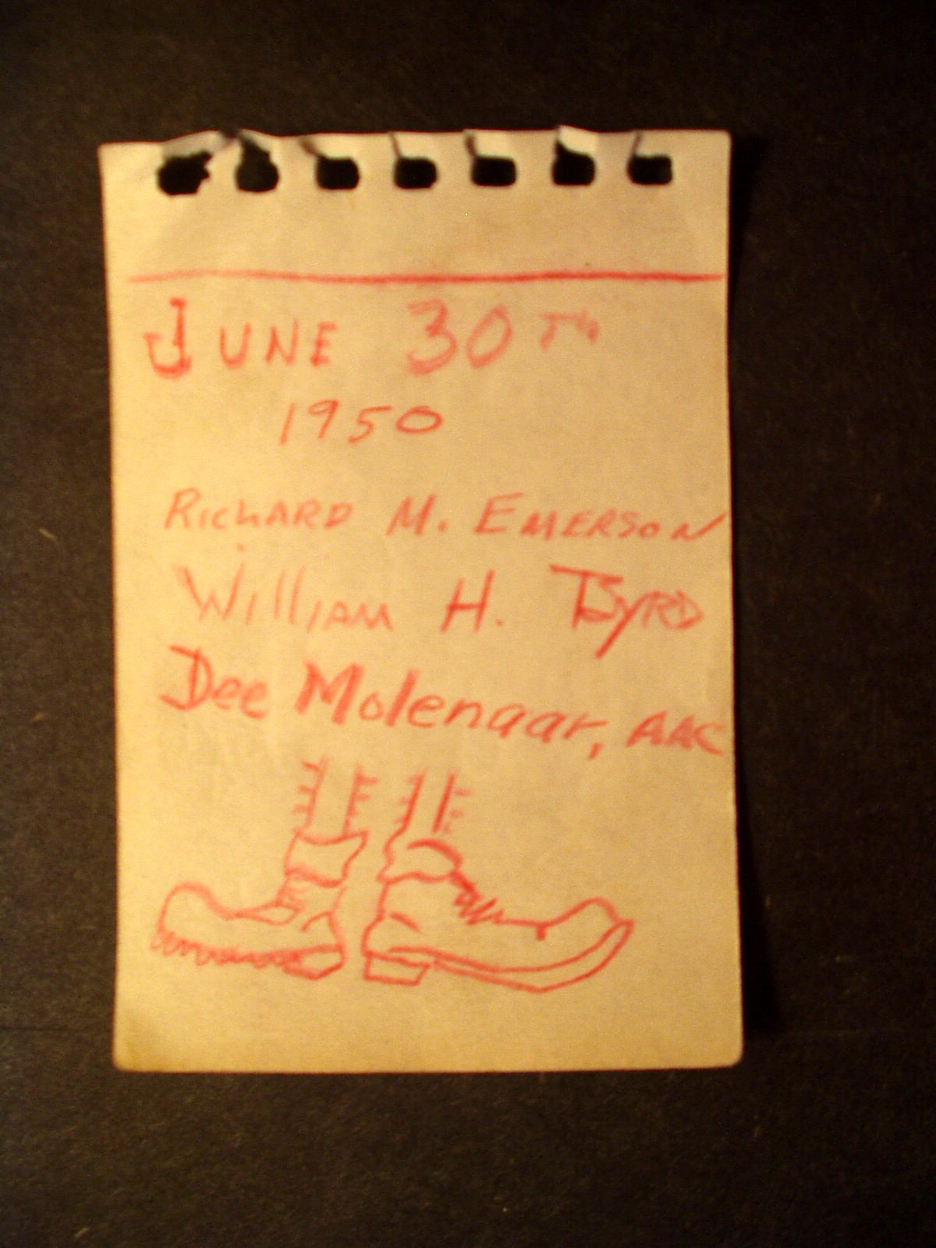 JUNE 30TH
1950
RICHARD M. EMERSON
William H. Byrd
Dee Molenaar, AAC